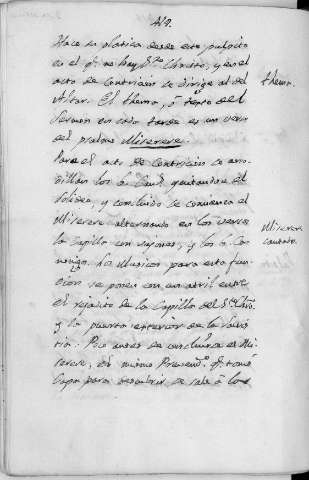 419.
Hace su platica desde este pulpito
en el qe. no hay Sto. Christo, y en el
acto de Contricion se dirige al del
Altar. El thema, ó texto del
Sermon en esta tarde es un verso
del psalmo Miserere.
thema.
Para el acto de Contricion se arro-
dillan los S. Can. quitandose el
Solideo, y concluido se comienza el
Miserere alternando en los versos
la Capilla con sajones, y los S. Ca-
nonigos. La Musica para esta fun-
cion se pone con un atril entre
el rejadito de la Capilla del Sto. Chro.
y la puerta exterior de la Sacris-
tia. Poco antes de concluirse el Mi-
serere, el mismo Prevend. qe. tomó
Capa para descubrir, se sale á los
Miserere
cantado.